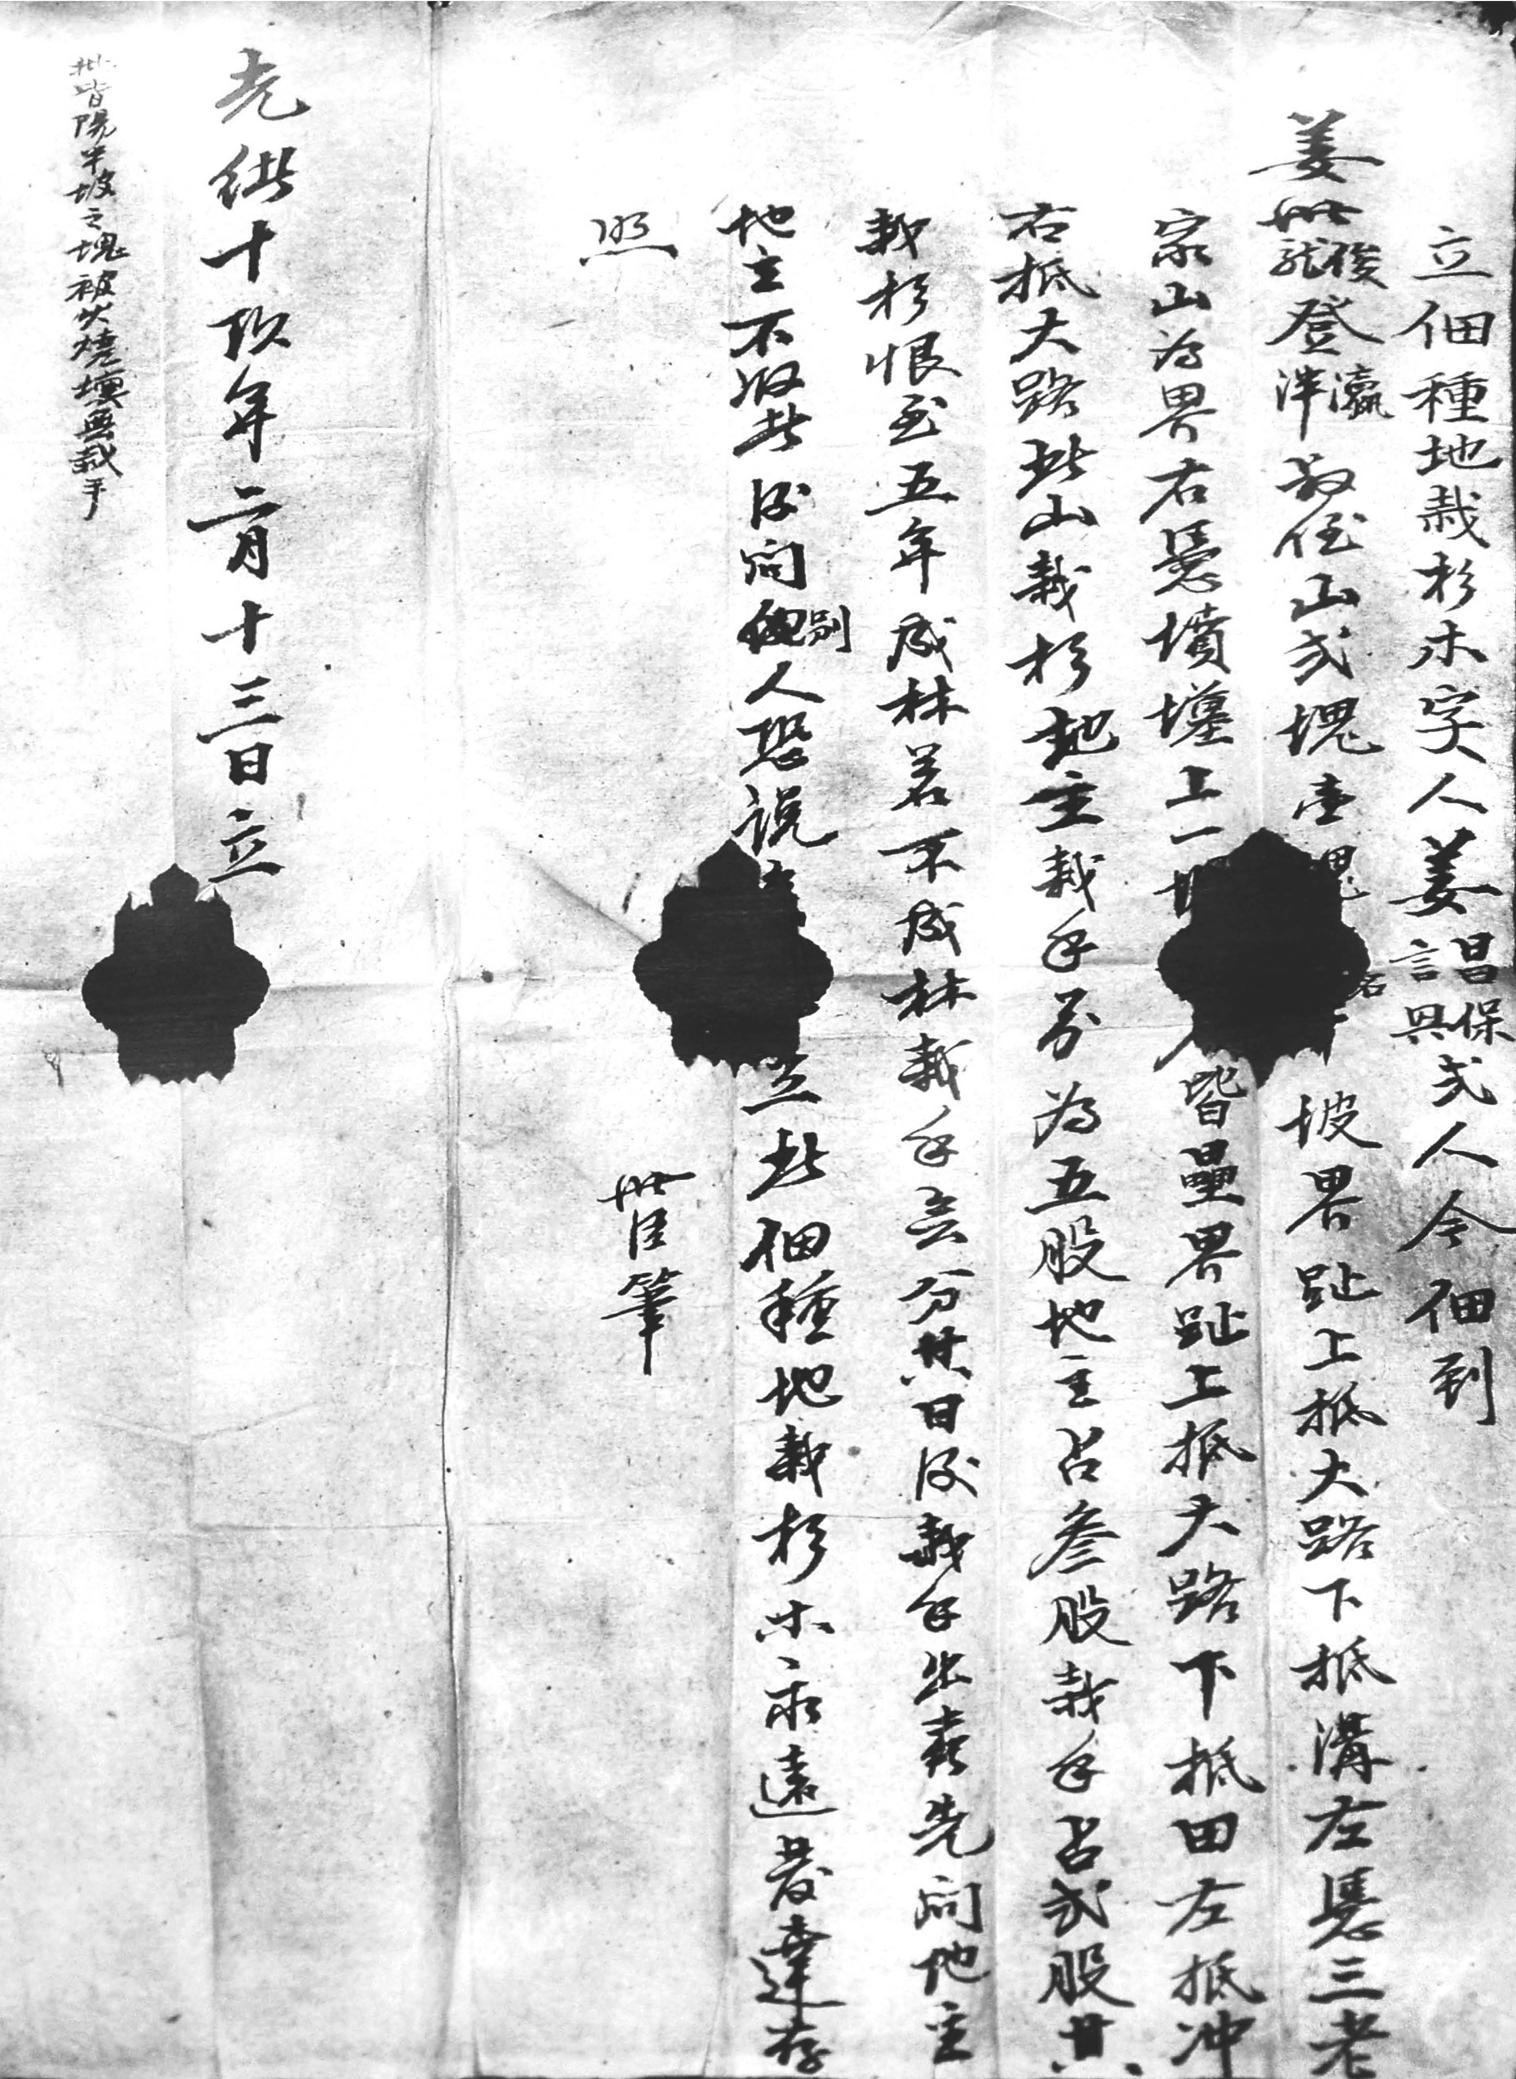 立佃種地栽杉木字人姜昌保言興弍人今佃到
姜世俊龍登瀛泮叔侄山弍塊壹塊坡界趾上抵大路下抵溝左憑三老
家山為界右憑墳墓上一塊皆壘界趾上抵大路下抵田左抵冲
右抵大路此山栽杉地主栽手分為五股地主占叁股栽手占弍股其
栽杉恨至五年成林若不成林栽手無分其日後栽手出賣先問地主
地主不收此後問別人恐說立此佃種地栽杉木永遠發達存
照
世臣筆
光緒十玖年二月十三日立
批皆陽半坡之塊被火燒壞無栽手